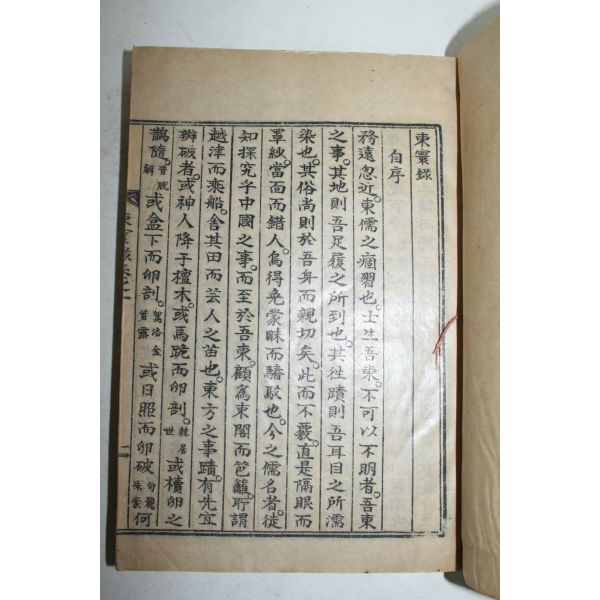 東寰錄
自序
務遠忽近。東儒之痼習也。士生吾東。不可以不明者。吾東
之事。其地則吾足履之所到也。其往蹟則吾耳目之所濡
染也。其俗尚則於吾身而親切矣。此而不覈。直是隔眼而
罩紗。當面而錯人。烏得免蒙昧而驕駁也。今之儒名者。徒
知探究乎中國之事。而至於吾東。顧爲束閣而笆籬。所謂
越津而乘船。舍其田而芸人之苗也。東方之事蹟。有先宜
辨破者。或神人降于檀木。或馬跪而卵剖。赫居世 或櫝卵之
鵲隨。昔脫解 或盒下而卵剖。駕洛金首露 或日照而卵破 句麗朱蒙 何